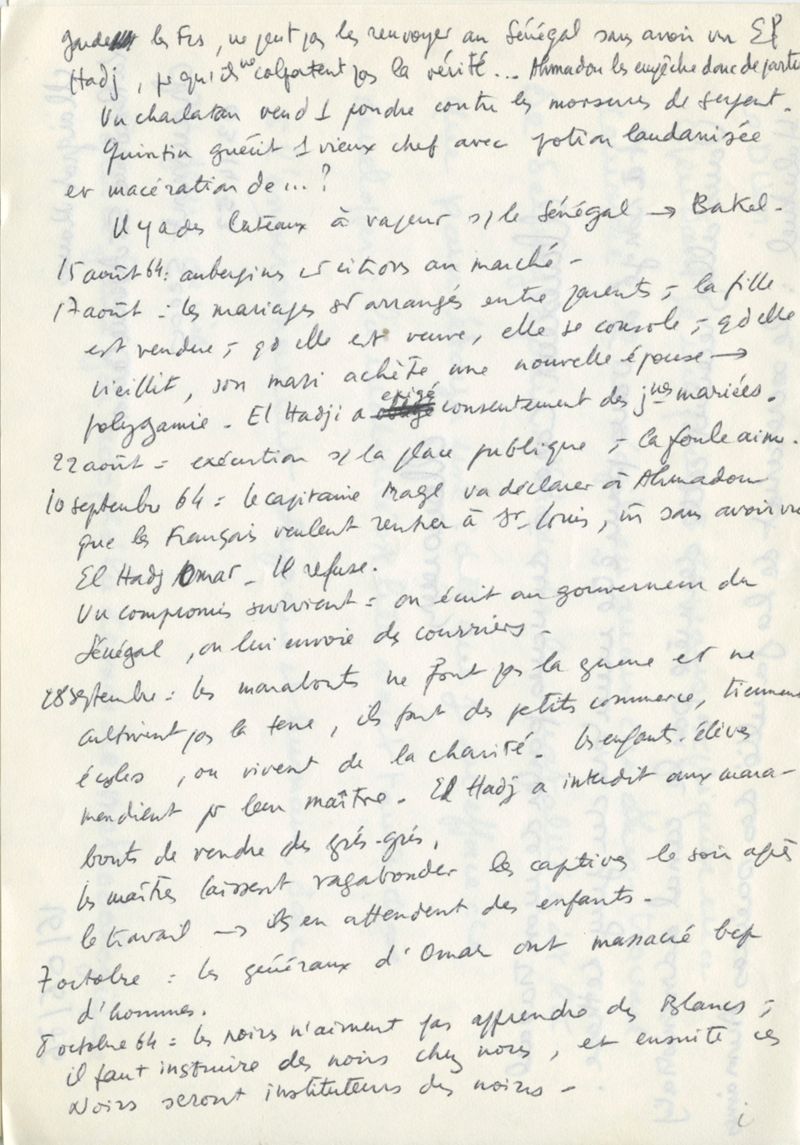 garder les Frs, ne peut pas les renvoyer au Sénégal sans avoir vu El
Hadj, pr qu'ils ne colportent pas la vérité... Ahmadou les empêche donc de partir
Un charlatan vend 1 poudre contre les morsures de serpent.
Quintin guérit 1 vieux chef avec potion laudanisée
et macération de...?
Il y a des bateaux à vapeur s/ le Sénégal → Bakel.
15 août 64: aubergines et citrons au marché -
17 août : les mariages st arrangés entre parents ; la fille
est vendue ; qd elle est veuve, elle se console ; qd elle
vieillit, son mari achète une nouvelle épouse →
polygamie. El Hadji a exigé consentement des jnes mariées.
22 août = exécution s/ la place publique ; la foule aime.
10 septembre 64 = le capitaine Mage va déclarer à Ahmadou
que les Français veulent rentrer à St Louis, sans avoir vu
El Hadj Omar. Il refuse.
Un compromis survient = on écrit au gouverneur du
Sénégal, on lui envoie des courriers -
28 septembre = les marabouts ne font pas la guerre et ne
cultivent pas la terre, ils font des petits commerce, tiennent
écoles, ou vivent de la charité. les enfants-élèves
mendient pr leur maître. El Hadj a interdit aux mara-
bouts de vendre des gris-gris,
les maîtres laissent vagabonder les captives le soir après
le travail → ils en attendent des enfants.
7 octobre = les généraux d'Omar ont massacré bcp
d'hommes.
8 octobre 64 = les noirs n'aiment pas apprendre des Blancs ;
il faut instruire des noirs chez nous, et ensuite ces
Noirs seront instituteurs des noirs -